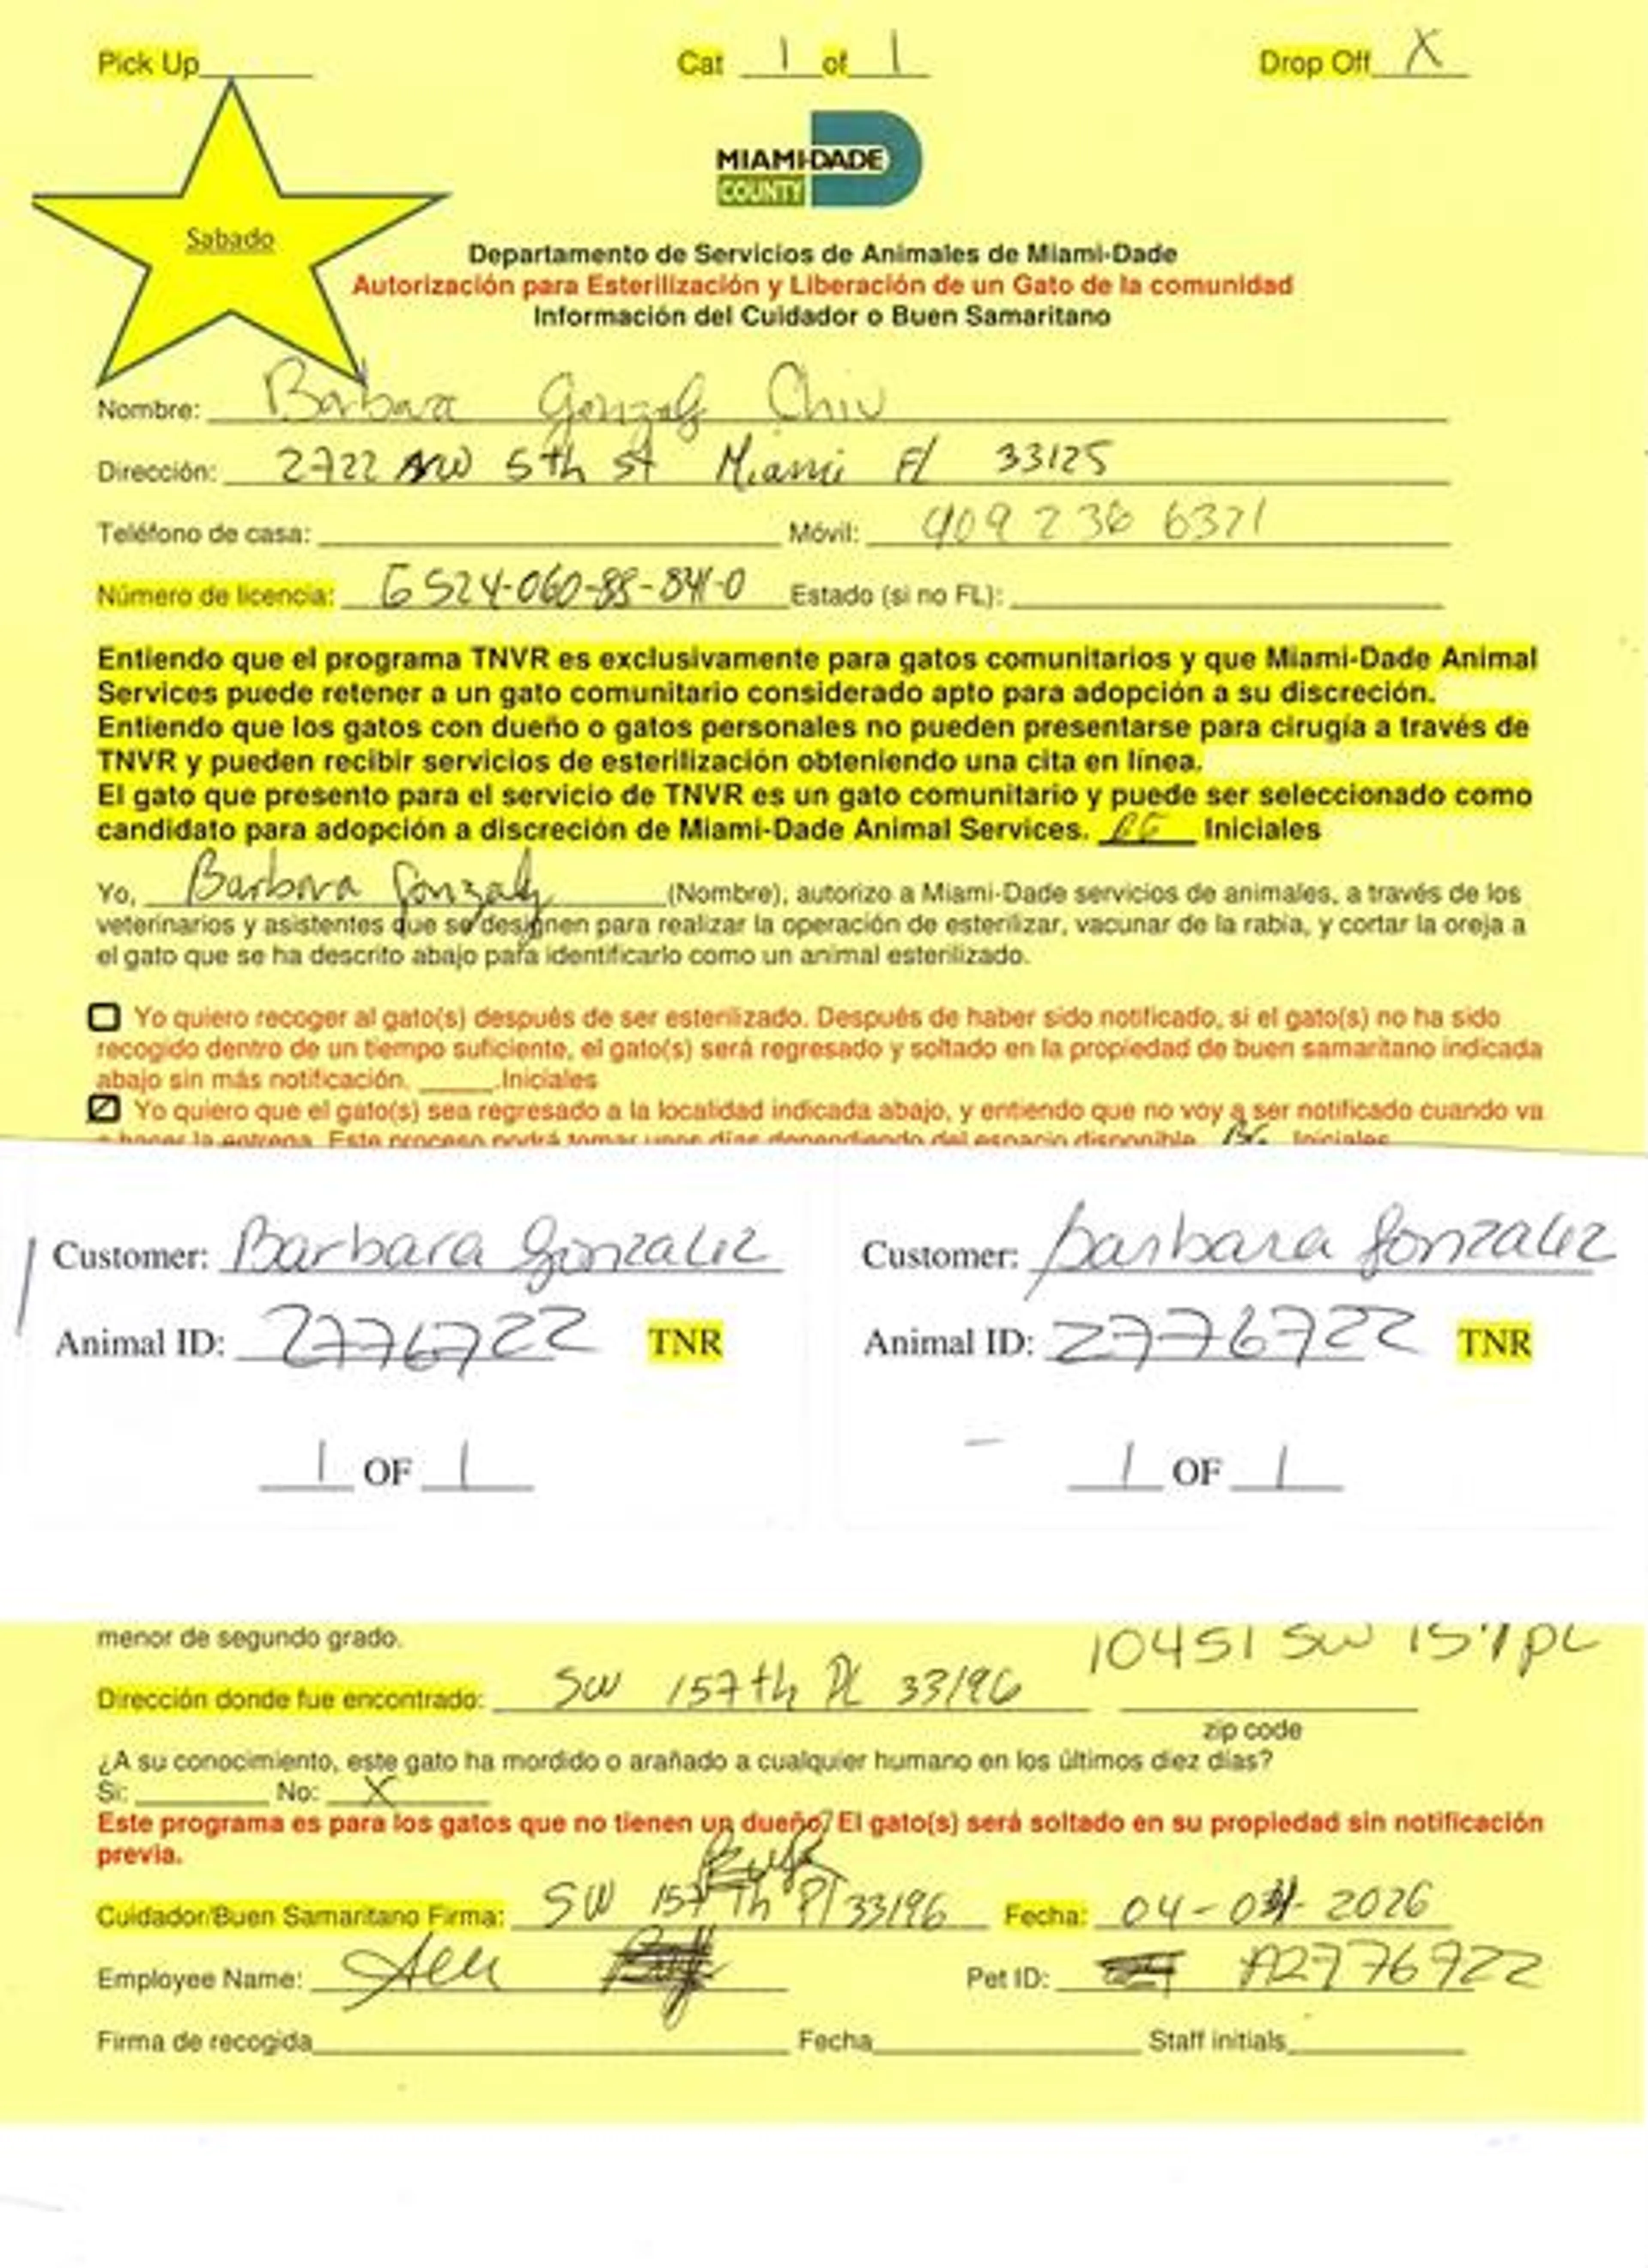 Pick Up Cat 1 of 1 Drop Off X
MIAMI-DADE
COUNTY
Sabado
Departamento de Servicios de Animales de Miami-Dade
Autorización para Esterilización y Liberación de un Gato de la comunidad
Información del Cuidador o Buen Samaritano
Nombre: Barbara Gonzalez Chiu
Dirección: 2722 NW 5th st Miami Fl 33125
Teléfono de casa: Móvil: 409 236 6321
Número de licencia: G524-060-88-841-0 Estado (si no FL):
Entiendo que el programa TNVR es exclusivamente para gatos comunitarios y que Miami-Dade Animal
Services puede retener a un gato comunitario considerado apto para adopción a su discreción.
Entiendo que los gatos con dueño o gatos personales no pueden presentarse para cirugía a través de
TNVR y pueden recibir servicios de esterilización obteniendo una cita en línea.
El gato que presento para el servicio de TNVR es un gato comunitario y puede ser seleccionado como
candidato para adopción a discreción de Miami-Dade Animal Services. BG Iniciales
Yo, Barbara Gonzalez (Nombre), autorizo a Miami-Dade servicios de animales, a través de los
veterinarios y asistentes que se designen para realizar la operación de esterilizar, vacunar de la rabia, y cortar la oreja a
el gato que se ha descrito abajo para identificarlo como un animal esterilizado.
Yo quiero recoger al gato(s) después de ser esterilizado. Después de haber sido notificado, si el gato(s) no ha sido
recogido dentro de un tiempo suficiente, el gato(s) será regresado y soltado en la propiedad de buen samaritano indicada
abajo sin más notificación. .Iniciales
Yo quiero que el gato(s) sea regresado a la localidad indicada abajo, y entiendo que no voy a ser notificado cuando va
a hacer la entrega. Este proceso podrá tomar unos días dependiendo del espacio disponible. BG Iniciales
Customer: Barbara Gonzalez Customer: Barbara Gonzalez
Animal ID: 2776722 TNR Animal ID: 2776722 TNR
1 OF 1 1 OF 1
menor de segundo grado. 10451 SW 157 PL
Dirección donde fue encontrado: SW 157th PL 33196
zip code
¿A su conocimiento, este gato ha mordido o arañado a cualquier humano en los últimos diez días?
Si: No: X
Este programa es para los gatos que no tienen un dueño? El gato(s) será soltado en su propiedad sin notificación
previa.
Cuidador/Buen Samaritano Firma: SW 157 Th Pl 33196 Fecha: 04-04-2026
Employee Name: Pet ID: A2776722
Firma de recogida Fecha Staff initials